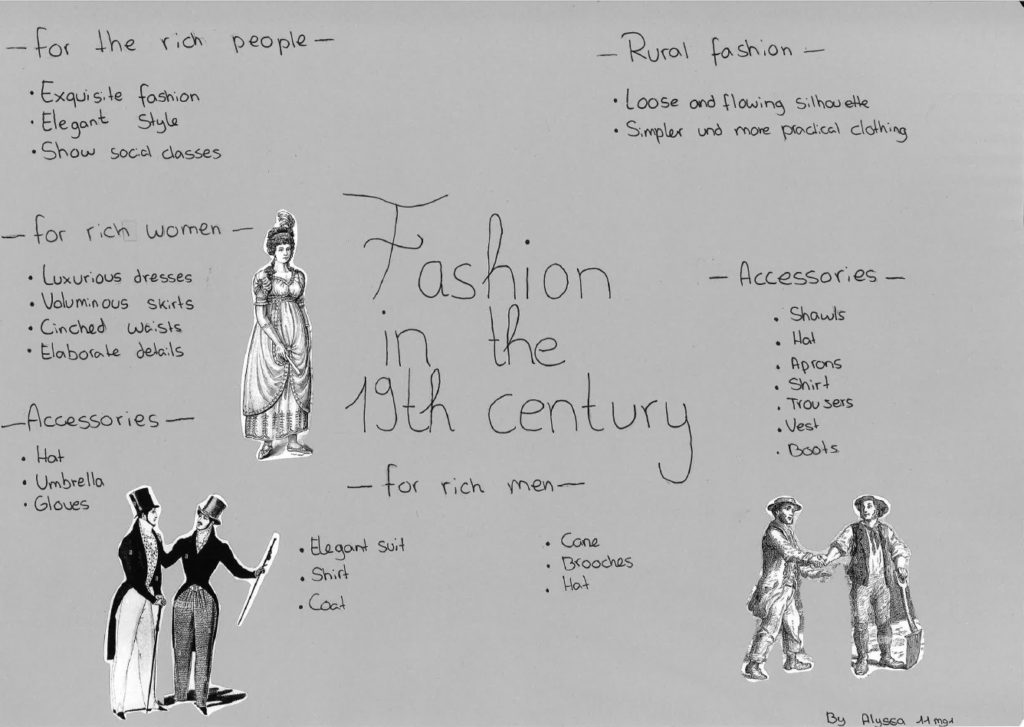 - for the rich people -
• Exquisite fashion
• Elegant Style
• Show social classes
- for rich women -
• Luxurious dresses
• Voluminous skirts
• Cinched waists
• Elaborate details
- Accessories -
• Hat
• Umbrella
• Gloves
Fashion
in the
19th century
- for rich men -
• Elegant suit
• Shirt
• Coat
• Cane
• Brooches
• Hat
- Rural fashion -
• Loose and flowing silhouette
• Simpler und more practical clothing
- Accessories -
• Shawls
• Hat
• Aprons
• Shirt
• Trousers
• Vest
• Boots
By Alyssa 11mg1